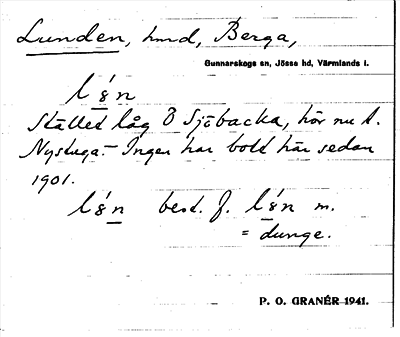 Lunden, hmd, Berga,
Gunnarskogs sn, Jösse hd, Värmlands l.
l8́n
Stället låg Ö Sjöbacka, hör nu t.
Nystuga.- Ingen har bott här sedan
1901.
l8́n best. f. l8́n m.
= dunge.
P. O. GRANÉR 1941.